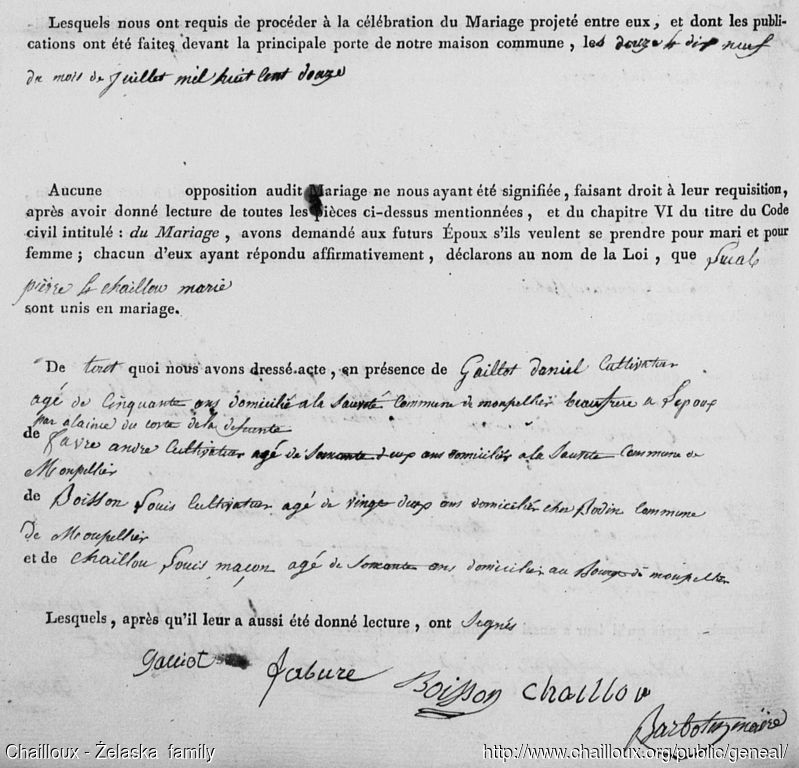 Lesquels nous ont requis de procéder à la célébration du Mariage projeté entre eux, et dont les publi-
cations ont été faites devant la principale porte de notre maison commune, les douze & dix neuf
du mois de Juillet mil huit Cent douze
Aucune opposition audit Mariage ne nous ayant été signifiée, faisant droit à leur requisition,
après avoir donné lecture de toutes les pièces ci-dessus mentionnées, et du chapitre VI du titre du Code
civil intitulé : du Mariage, avons demandé aux futurs Époux s'ils veulent se prendre pour mari et pour
femme ; chacun d'eux ayant répondu affirmativement, déclarons au nom de la Loi, que
pierre & chaillou marie
sont unis en mariage.
De tout quoi nous avons dressé acte, en présence de Gaillot daniel Cultivateur
agé de Cinquante ans domicilié a la Sauveté Commune de monpellier beaufrere a Lepoux
par alaince du coté de la defunte
de favre andre Cultivateur agé de Soixante deux ans domicilié a la Sauvete Commune de
Monpellier
de Boisson Louis Cultivateur agé de vingt deux ans domicilié chez Bodin Commune
De Monpellier
et de Chaillou Louis maçon agé de Soixante ans domicilié au Bourg de monpellier
Lesquels, après qu'il leur a aussi été donné lecture, ont Signés
Boisson Chaillou
maire
Chailloux - Żelaska family http://www.chailloux.org/public/geneal/